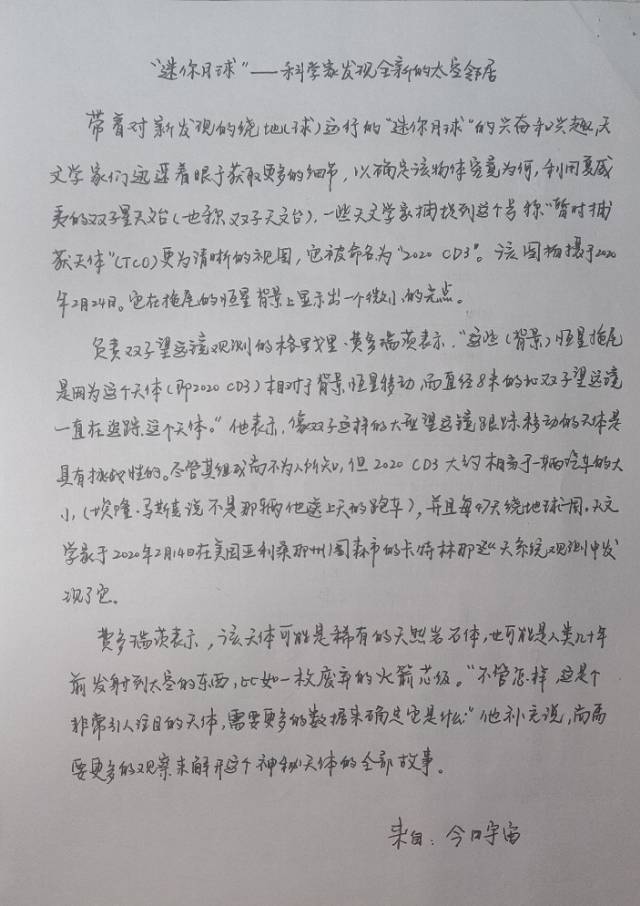 “迷你月球”——科学家发现全新的太空邻居
带着对新发现的绕地(球)运行的“迷你月球”的兴奋和兴趣,天
文学家们迅速着眼于获取更多的细节,以确定该物体究竟为何,利用夏威
夷的双子星天文台(也称双子天文台),一些天文学家捕捉到这个号称“暂时捕
获天体”(TCO)更为清晰的视图,它被命名为“2020 CD3”。该图拍摄于2020
年2月24日。它在拖尾的恒星背景上显示出一个微小的光点。
负责双子望远镜观测的格里戈里·费多瑞茨表示,“这些(背景)恒星拖尾
是因为这个天体(即2020 CD3)相对于背景恒星移动,而直径8米的的双子望远镜
一直在追踪这个天体。”他表示,像双子这样的大型望远镜跟踪移动的天体是
具有挑战性的。尽管其组成尚不为人所知,但 2020 CD3 大约相当于一辆汽车的大
小,(埃隆·马斯克说不是那辆他送上天的跑车),并且每47天绕地球一周。天文
学家于2020年2月14日在美国亚利桑那州图森市的卡特林那巡天系统观测中发
现了它。
费多瑞茨表示,该天体可能是稀有的天然岩石体,也可能是人类几十年
前发射到太空的东西,比如一枚废弃的火箭芯级。“不管怎样,这是个
非常引人注目的天体,需要更多的数据来确定它是什么”他补充说,尚需
要更多的观察来解开这个神秘天体的全部故事。
来自:今日宇宙